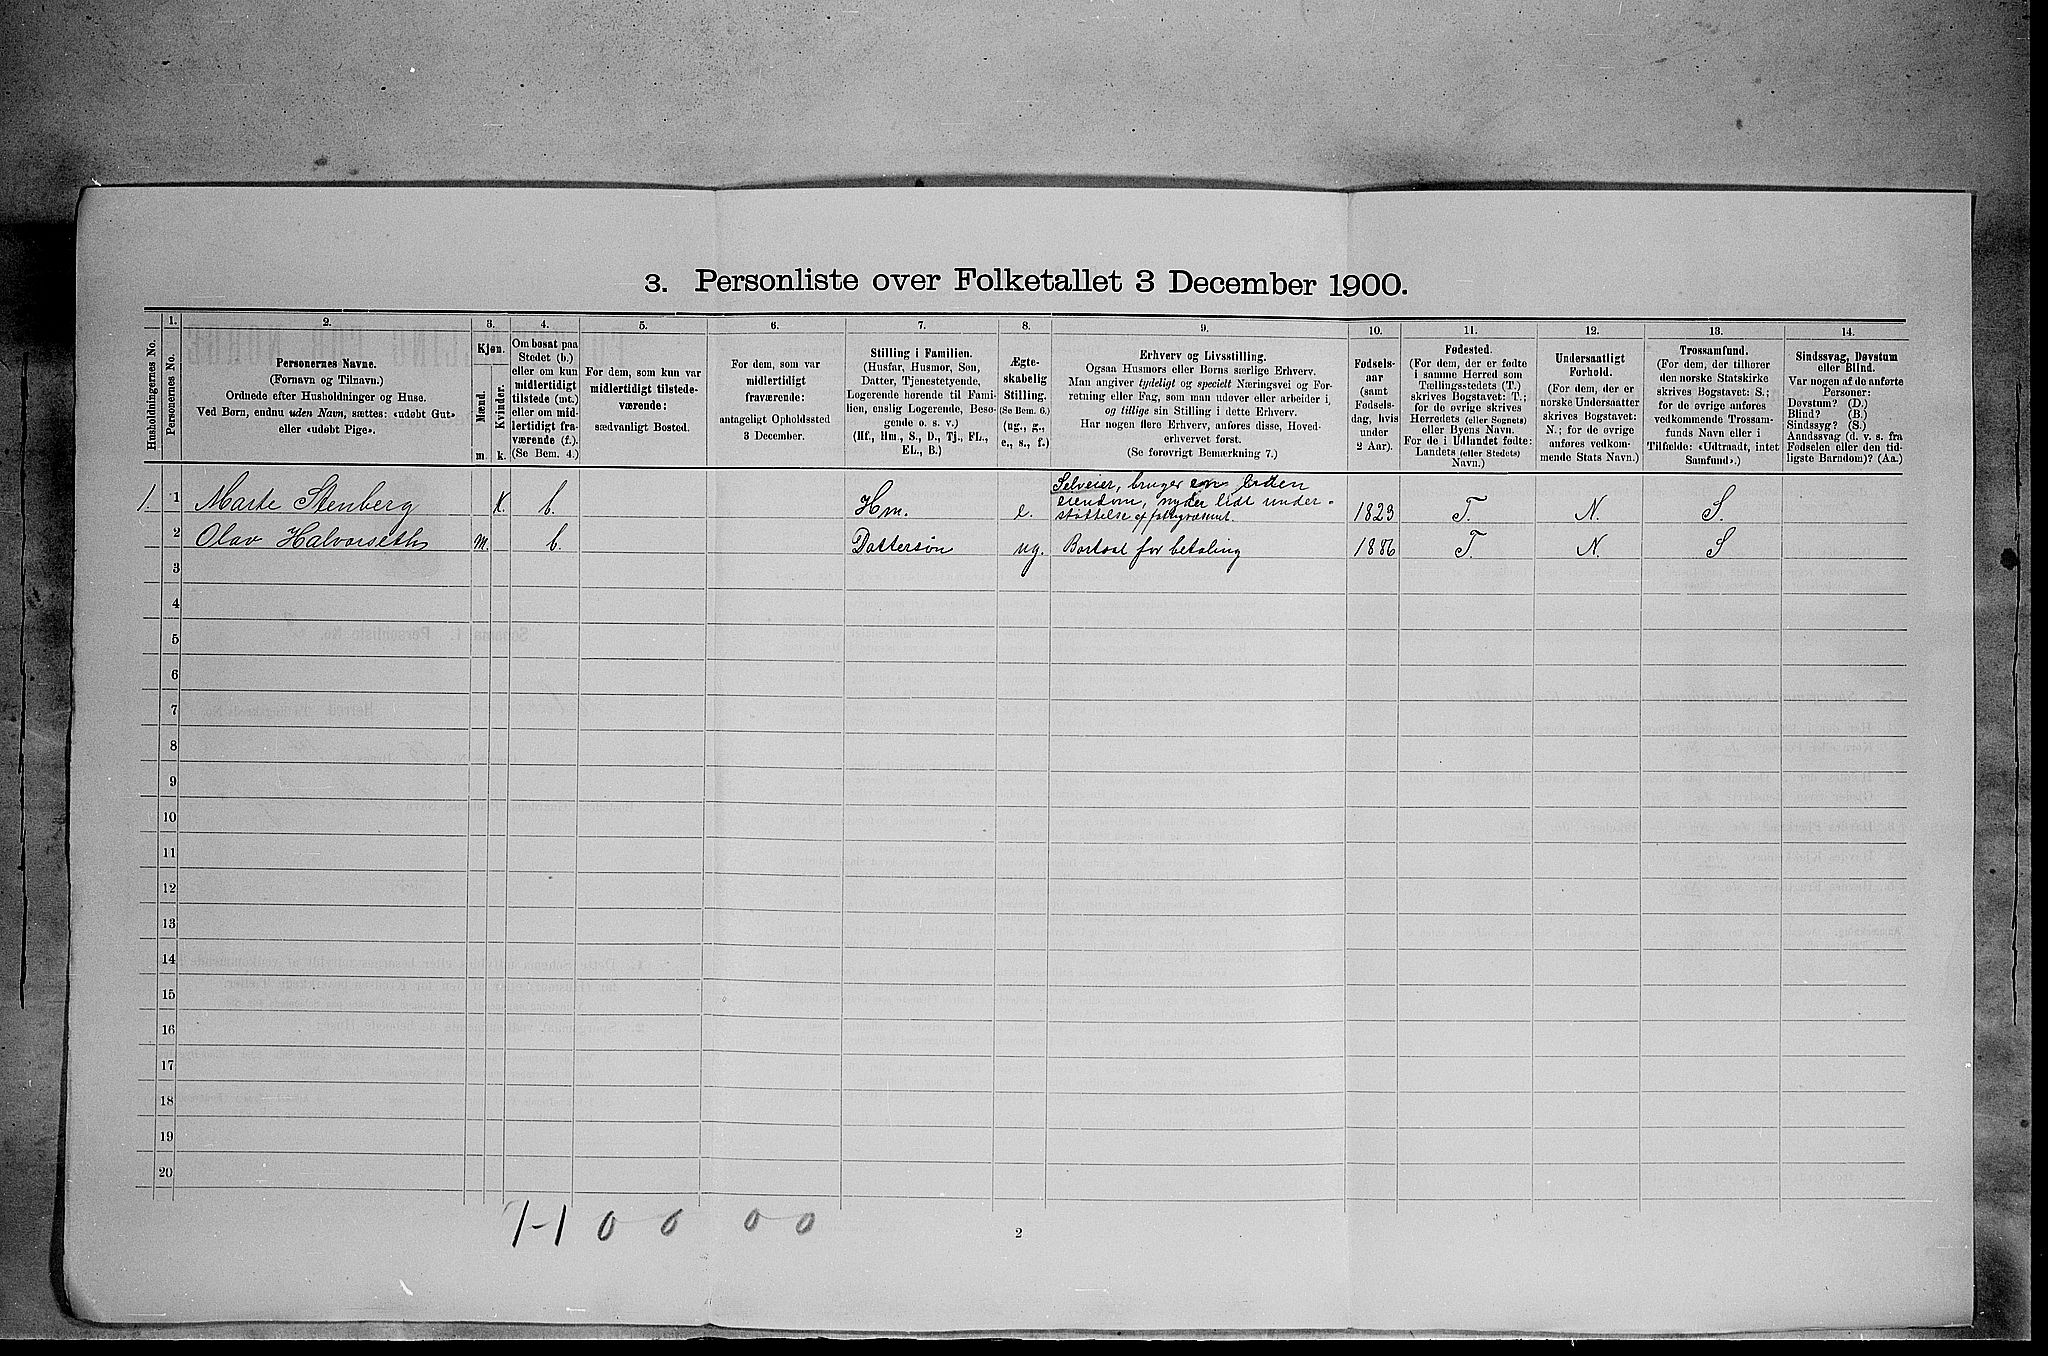 3. Personliste over Folketallet 3 December 1900.
1. 2. 3. 4. 5. 6. 7. 8. 9. 10. 11. 12. 13. 14.
Husholdningernes No.
Personernes No.
Personernes Navne.
(Fornavn og Tilnavn.)
Ordnede efter Husholdninger og Huse.
Ved Børn, endnu uden Navn, sættes: «udøbt Gut»
eller «udøbt Pige».
Kjøn.
Mænd.
Kvinder.
m. k.
Om bosat paa
Stedet (b.)
eller om kun
midlertidigt
tilstede (mt.)
eller om mid-
lertidigt fra-
værende (f.).
(Se Bem. 4.)
For dem, som kun var
midlertidigt tilstede-
værende:
sædvanligt Bosted.
For dem, som var
midlertidigt
fraværende:
antageligt Opholdssted
3 December.
Stilling i Familien.
(Husfar, Husmor, Søn,
Datter, Tjenestetyende,
Logerende hørende til Fami-
lien, enslig Logerende, Besø-
gende o. s. v.)
(Hf., Hm., S., D., Tj., FL.,
EL., B.)
Ægte-
skabelig
Stilling.
(Se Bem. 6.)
(ug., g.,
e., s., f.)
Erhverv og Livsstilling.
Ogsaa Husmors eller Børns særlige Erhverv.
Man angiver tydeligt og specielt Næringsvei og For-
retning eller Fag, som man udøver eller arbeider i,
og tillige sin Stilling i dette Erhverv.
Har nogen flere Erhverv, anføres disse, Hoved-
erhvervet først.
(Se forøvrigt Bemærkning 7.)
Fødsels-
aar
(samt
Fødsels-
dag, hvis
under
2 Aar).
Fødested.
(For dem, der er fødte
i samme Herred som
Tællingsstedets (T.)
skrives Bogstavet: T.;
for de øvrige skrives
Herredets (eller Sognets)
eller Byens Navn.
For de i Udlandet fødte:
Landets (eller Stedets)
Navn.)
Undersaatligt
Forhold.
(For dem, der er
norske Undersaatter
skrives Bogstavet:
N.; for de øvrige
anføres vedkom-
mende Stats Navn.)
Trossamfund.
(For dem, der tilhører
den norske Statskirke
skrives Bogstavet: S.;
for de øvrige anføres
vedkommende Trossam-
funds Navn eller i
Tilfælde: «Udtraadt, intet
Samfund».)
Sindssvag, Døvstum
eller Blind.
Var nogen af de anførte
Personer:
Døvstum? (D.)
Blind? (B.)
Sindssyg? (S.)
Aandssvag (d. v. s. fra
Fødselen eller den tid-
ligste Barndom)? (Aa.)
1. 1 Marte Stenberg K. b. Hm. e. Selveier, bruger en liden
eiendom, nyder lidt under-
støttelse af fattigvæsenet. 1823 T. N. S.
2 Olav Halvorseth m. b. Dattersøn ug. Bortsat for betaling 1886 T. N. S
3
4
5
6
7
8
9
10
11
12
13
14
15
16
17
18
19
20
1-1 0 0 0 0
2